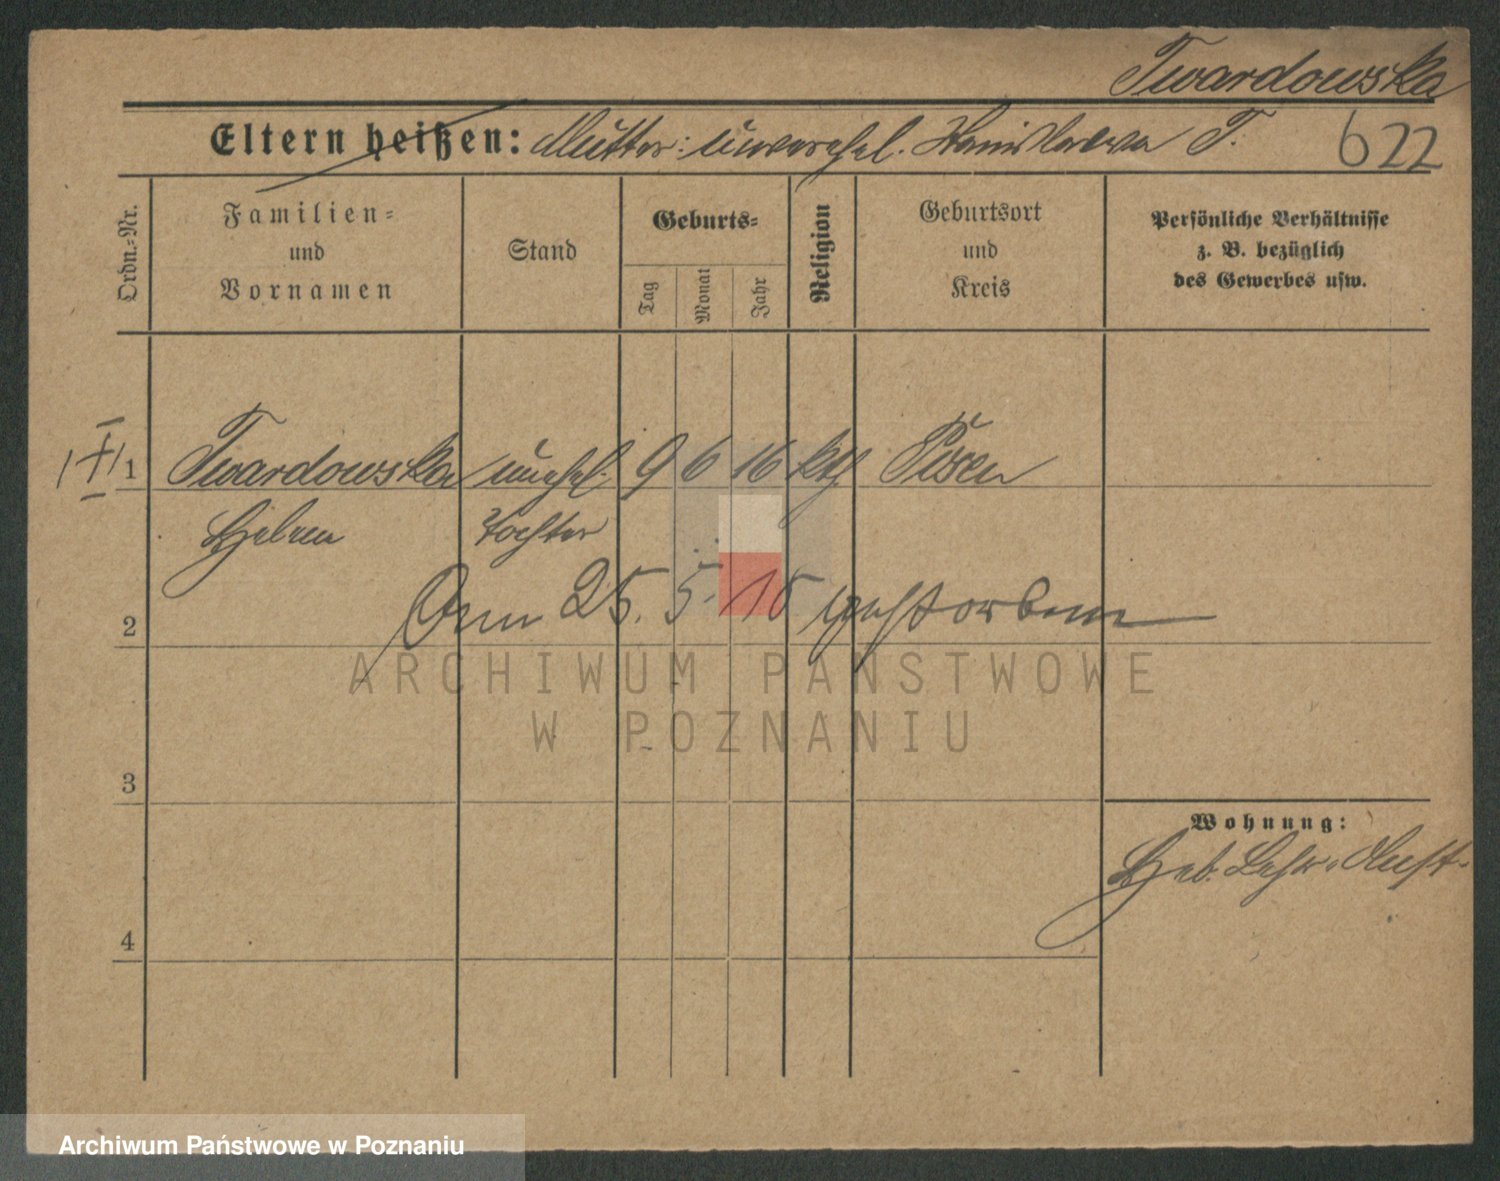 Twardowska
Eltern heißen: Mutter: unverehel. Stanislawa T. 622
Ordn.=Nr.
Familien=
und
Vornamen
Stand
Geburts=
Tag
Monat
Jahr
Religion
Geburtsort
und
Kreis
Persönliche Verhältnisse
z. B. bezüglich
des Gewerbes usw.
1 Twardowska unehel. 9 6 16 kth Posen
Helene Tochter
Am 25. 5. gestorben
2
ARCHIWUM PAŃSTWOWE
W POZNANIU
3
Wohnung:
Heb. Lehr-Anst.
4
Archiwum Państwowe w Poznaniu